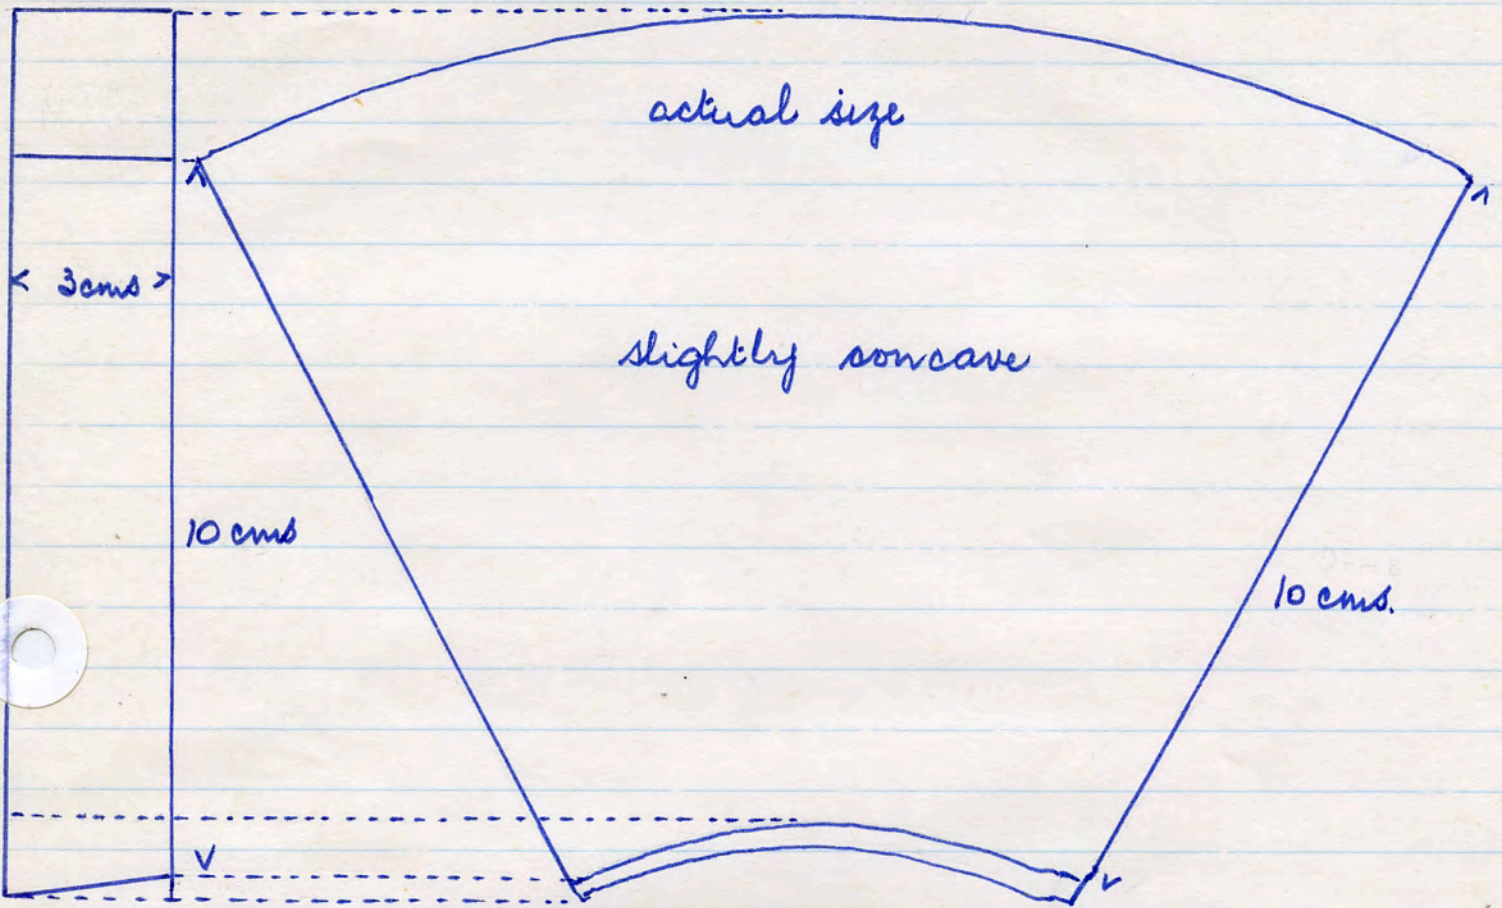 actual size
< 3cms >
slightly concave
10 cms
10 cms.